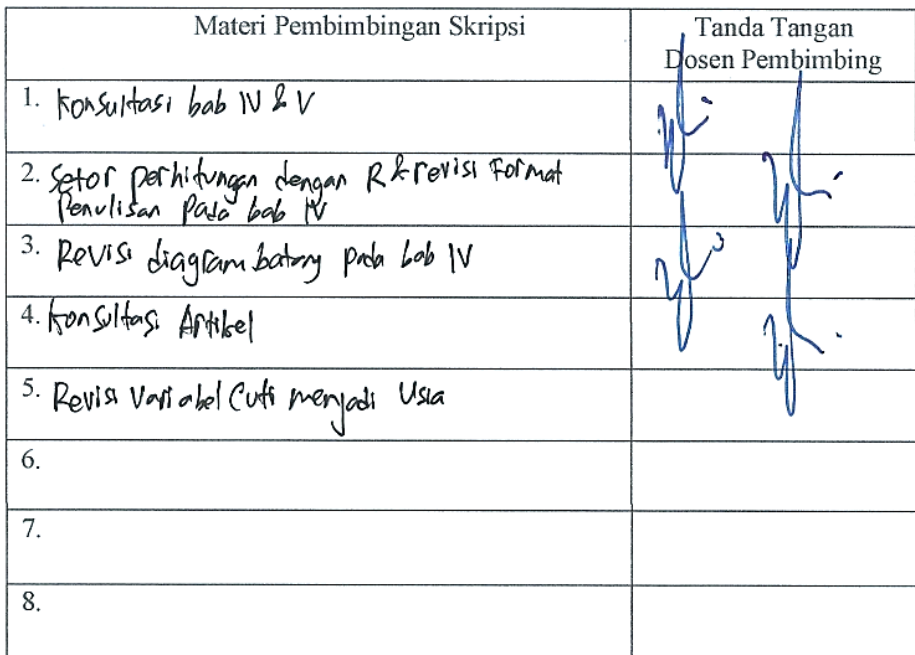 Materi Pembimbingan Skripsi
Tanda Tangan
Dosen Pembimbing
1. Konsultasi bab IV & V
2. Setor perhitungan dengan R & revisi Format
Penulisan Pada bab IV
3. Revisi diagram batang pada bab IV
4. Konsultasi Artikel
5. Revisi Variabel Cuti menjadi Usia
6.
7.
8.